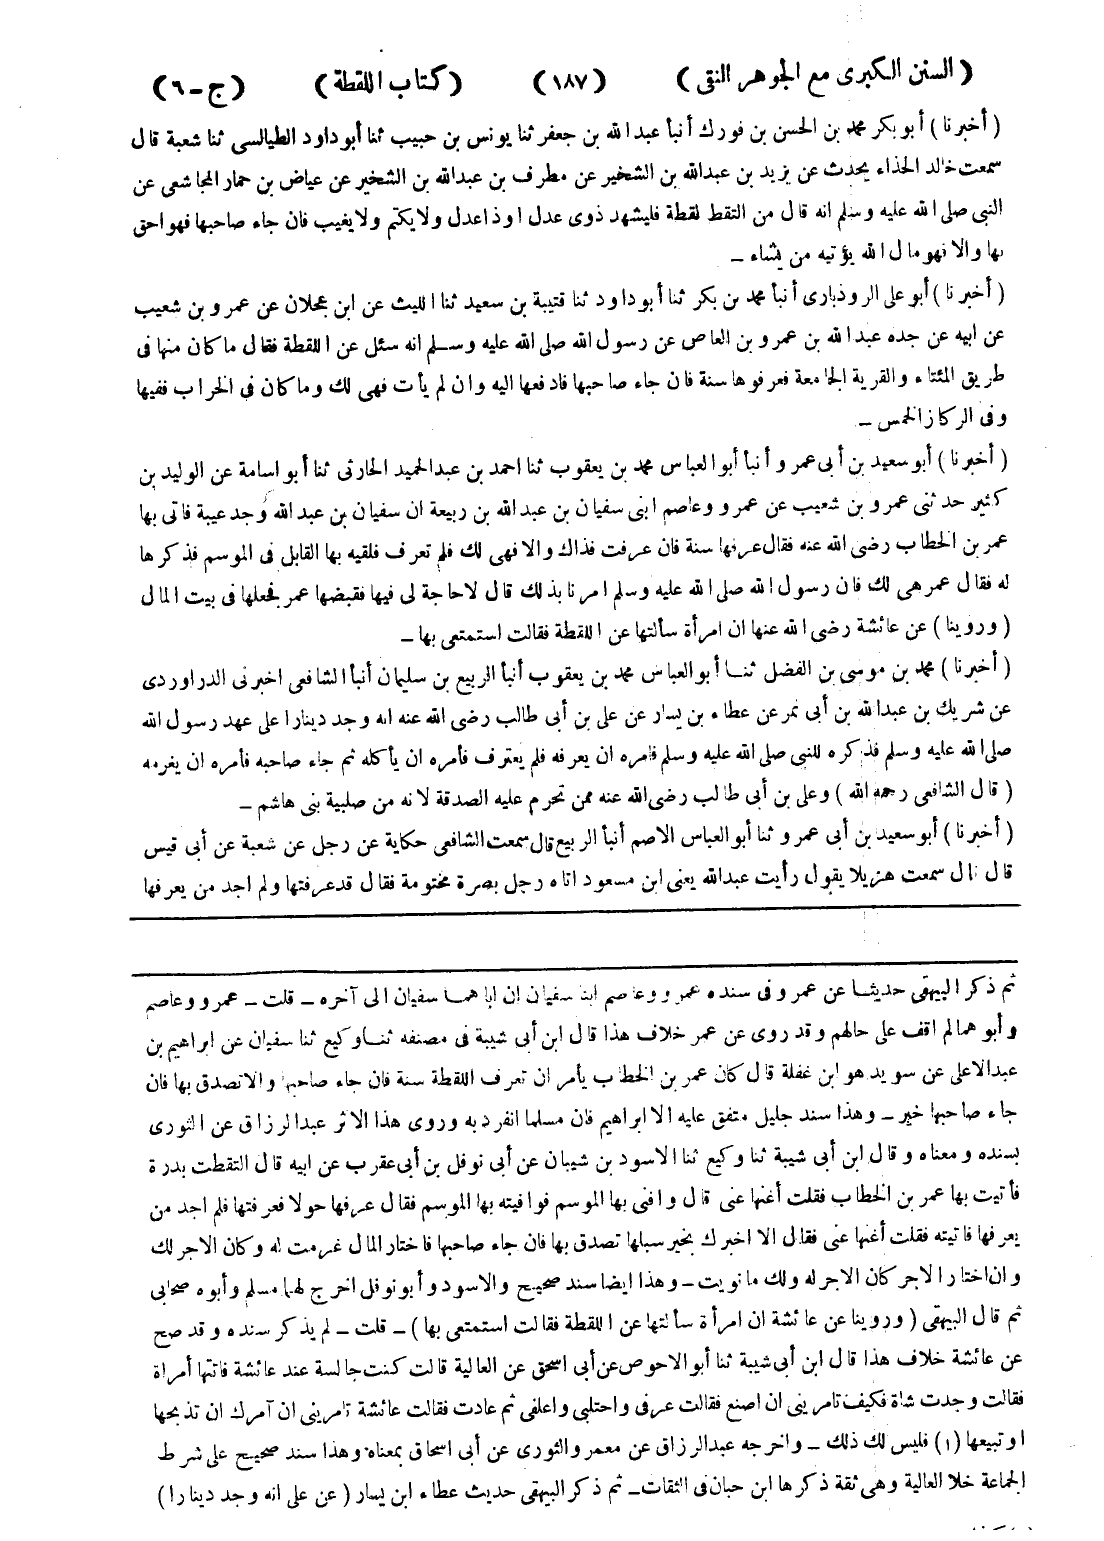 ( السنن الكبرى مع الجوهر النقى ) ( ١٨٧ ) ( كتاب اللقطة ) ( ج - ٦ )
( أخبرنا ) أبو بكر محمد بن الحسن بن فورك أنبأ عبد الله بن جعفر ثنا يونس بن حبيب ثنا أبو داود الطيالسى ثنا شعبة قال
سمعت خالد الحذاء يحدث عن يزيد بن عبدالله بن الشخير عن مطرف بن عبدالله بن الشخير عن عياض بن حمار المجاشعى عن
النبى صلى الله عليه وسلم انه قال من التقط لقطة فليشهد ذوى عدل او ذا عدل ولا يكتم ولا يغيب فان جاء صاحبها فهو احق
بها والا فهو مال الله يؤتيه من يشاء ـ
( أخبرنا ) أبو على الروذبارى أنبأ محمد بن بكر ثنا أبو داود ثنا قتيبة بن سعيد ثنا الليث عن ابن عجلان عن عمرو بن شعيب
عن ابيه عن جده عبد الله بن عمرو بن العاص عن رسول الله صلى الله عليه وسلم انه سئل عن اللقطة فقال ما كان منها فى
طريق المئتاء والقرية الجامعة فعرفوها سنة فان جاء صاحبها فادفعها اليه وان لم يأت فهى لك وما كان فى الخراب ففيها
وفى الركاز الخمس ـ
( أخبرنا ) أبو سعيد بن أبى عمرو أنبأ أبو العباس محمد بن يعقوب ثنا احمد بن عبد الحميد الحارثى ثنا أبو اسامة عن الوليد بن
كثير حدثنى عمرو بن شعيب عن عمرو وعاصم ابنى سفيان بن عبد الله بن ربيعة ان سفيان بن عبد الله وجد عيبة فاتى بها
عمر بن الخطاب رضى الله عنه فقال عرفها سنة فان عرفت فذاك والا فهى لك فلم تعرف فلقيه بها القابل فى الموسم فذكرها
له فقال عمر هى لك فان رسول الله صلى الله عليه وسلم امرنا بذلك قال لا حاجة لى فيها فقبضها عمر فجعلها فى بيت المال
( وروينا ) عن عائشة رضى الله عنها ان امرأة سألتها عن اللقطة فقالت استمتعى بها ـ
( أخبرنا ) محمد بن موسى بن الفضل ثنا أبو العباس محمد بن يعقوب أنبأ الربيع بن سليمان أنبأ الشافعى اخبرنى الدراوردى
عن شريك بن عبدالله بن أبى نمر عن عطاء بن يسار عن على بن أبى طالب رضى الله عنه انه وجد دينارا على عهد رسول الله
صلى الله عليه وسلم فذكره للنبى صلى الله عليه وسلم فامره ان يعرفه فلم يعترف فأمره ان يأكله ثم جاء صاحبه فأمره ان يغرمه
( قال الشافعى رحمه الله ) وعلى بن أبى طالب رضى الله عنه ممن تحرم عليه الصدقة لانه من صلبية بنى هاشم ـ
( أخبرنا ) أبو سعيد بن أبى عمرو ثنا أبو العباس الاصم أنبأ الربيع قال سمعت الشافعى حكاية عن رجل عن شعبة عن أبى قيس
قال قال سمعت هزيلا يقول رأيت عبدالله يعنى ابن مسعود اتاه رجل بصرة مختومة فقال قد عرفتها ولم اجد من يعرفها
ثم ذكر البيهقى حديثا عن عمر وفى سنده عمرو وعاصم ابنا سفيان ان اباهما سفيان الى آخره ـ قلت ـ عمرو وعاصم
وأبوهما لم اقف على حالهم وقد روى عن عمر خلاف هذا قال ابن أبى شيبة فى مصنفه ثنا وكيع ثنا سفيان عن ابراهيم بن
عبد الاعلى عن سويد هو ابن غفلة قال كان عمر بن الخطاب يأمر ان تعرف اللقطة سنة فان جاء صاحبها والا تصدق بها فان
جاء صاحبها خير ـ وهذا سند جليل متفق عليه الا ابراهيم فان مسلما انفرد به وروى هذا الاثر عبد الرزاق عن الثورى
بسنده ومعناه وقال ابن أبى شيبة ثنا وكيع ثنا الاسود بن شيبان عن أبى نوفل بن أبى عقرب عن ابيه قال التقطت بدرة
فأتيت بها عمر بن الخطاب فقلت أغنها عنى قال وافنى بها الموسم فوافيته بها الموسم فقال عرفها حولا فعرفتها فلم اجد من
يعرفها فاتيته فقلت أغنها عنى فقال الا اخبرك بخير سبلها تصدق بها فان جاء صاحبها فاختار المال غرمت له وكان الاجر لك
وان اختار الاجر كان الاجر له ولك ما نويت ـ وهذا ايضا سند صحيح والاسود وأبو نوفل اخرج لهما مسلم وأبوه صحابى
ثم قال البيهقى ( وروينا عن عائشة ان امرأة سألتها عن اللقطة فقالت استمتعى بها ) ـ قلت ـ لم يذكر سنده وقد صح
عن عائشة خلاف هذا قال ابن أبى شيبة ثنا أبو الاحوص عن أبى اسحق عن العالية قالت كنت جالسة عند عائشة فاتتها أمرأة
فقالت وجدت شاة فكيف تامرينى ان اصنع فقالت عرفى واحتلبى واعلفى ثم عادت فقالت عائشة تامرينى ان آمرك ان تذبحها
او تبيعها (١) فليس لك ذلك ـ واخرجه عبد الرزاق عن معمر والثورى عن أبى اسحاق بمعناه وهذا سند صحيح على شرط
الجماعة خلا العالية وهى ثقة ذكرها ابن حبان فى الثقات ـ ثم ذكر البيهقى حديث عطاء ابن يسار ( عن على انه وجد دينارا )